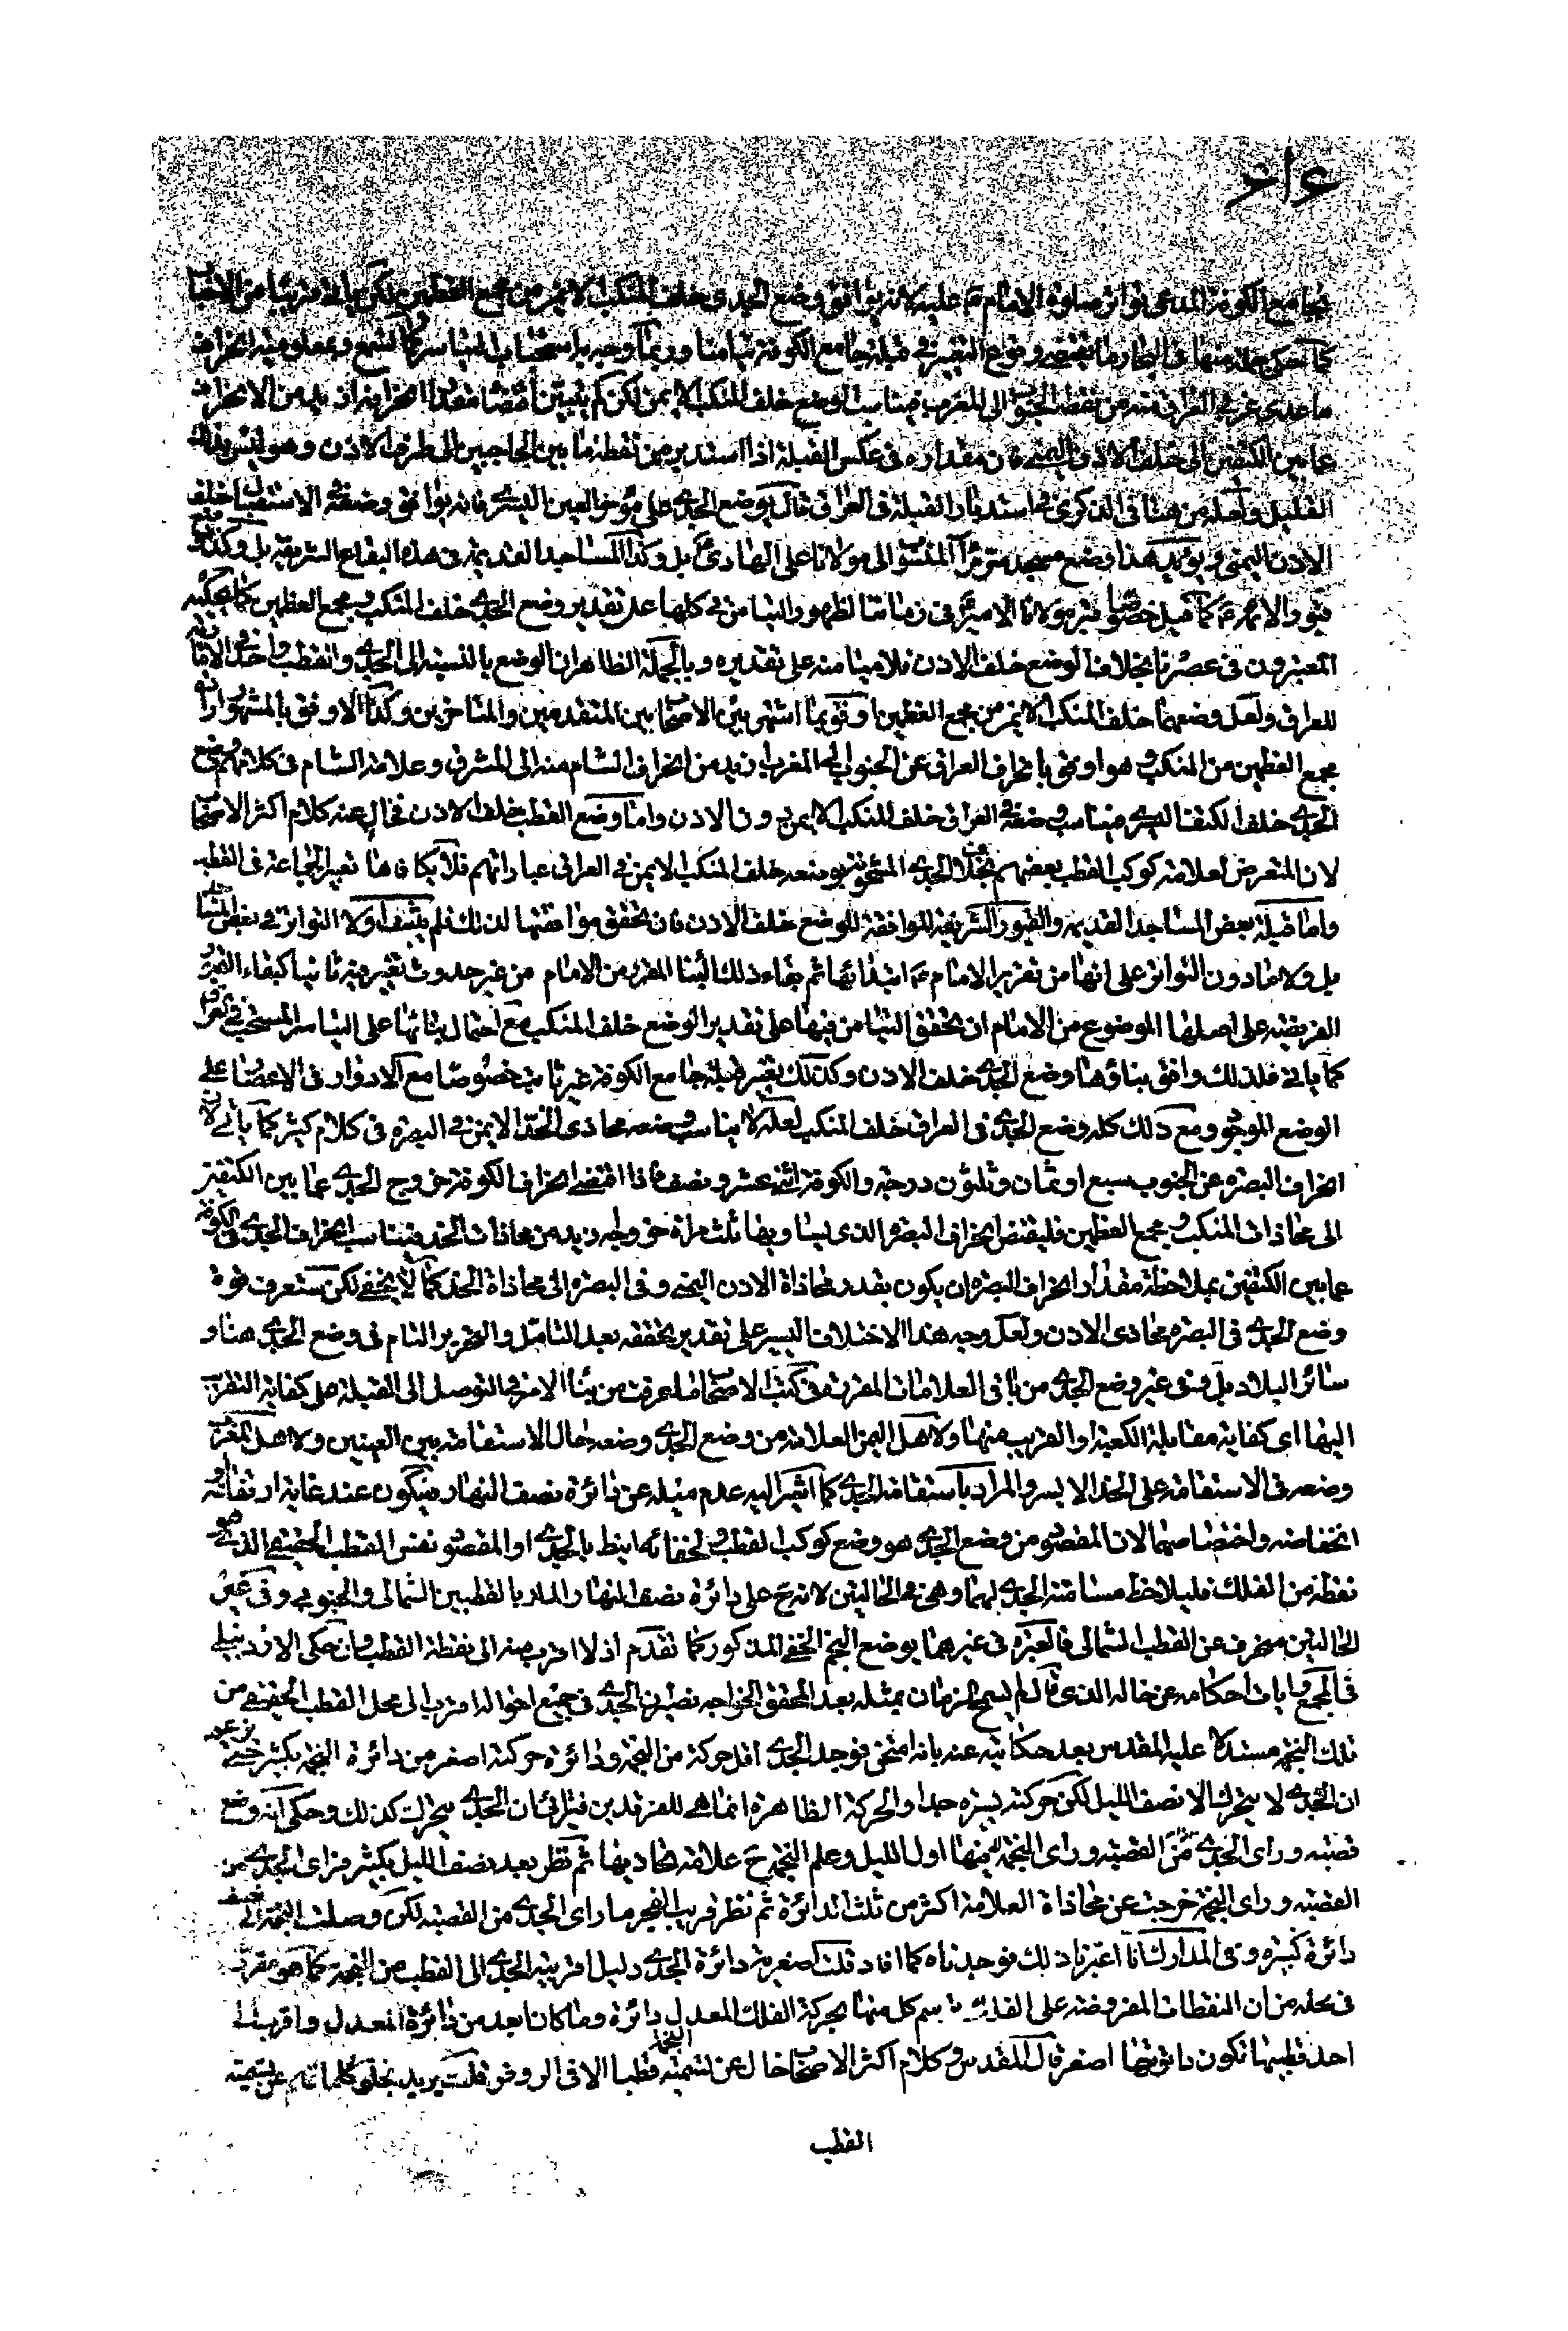 بجامع الكوفة المدعى تواتر صلوة الامام ع عليه لانه يوافق وضع الجدى خلف المنكب الايمن من مجمع العظمين لكن ياتى قريبا من الاصحاب
كما حكى جملة منها فى البحار ما يقتضى وقوع التغيير فى قبلة جامع الكوفة تيامنا وربما وجه باستحباب التياسر كما تسمع وبمعلومية انحراف
ما عدى غربى العراق منه من نقطة الجنوب الى المغرب فيناسب الوضع خلف المنكب الايمن لكن لم يتبين اقتضا مقدار انحرافه ازيد من الانحراف
عما بين الكتفين الى خلف الاذن اليمنى فان مقداره فى عكس القبلة اذا استدبر من نقطة ما بين الحاجبين الى طرف الاذن وهو ليس بذلك
القليل ولعله من هنا فى الذكرى فى استدبار القبلة فى العراق قال يوضع الجدى على مؤخر العين اليسرى فانه يوافق وضعه فى الاستقبال خلف
الاذن اليمنى ويؤيد هذا وضع مسجد سر من رآ المنسوب الى مولانا على الهادى ع بل وكذا المساجد القديمة فى هذه البقاع الشريفة بل وكذا
قبور الائمة ع كما قيل خصوصا قبر مولانا الامير ع فى زماننا لظهور التيامن فى كلها على تقدير وضع الجدى خلف المنكب فى مجمع العظمين كما يحكيه
المعتبرون فى عصرنا بخلاف الوضع خلف الاذن فلا تيامن على تقديره وبالجملة الظاهر ان الوضع بالنسبة الى الجدى والقطب واحد
للعراق ولعل وضعهما خلف المنكب الايمن من مجمع العظمين اوفق بما اشتهر بين الاصحاب بين المتقدمين والمتاخرين وكذا الاوفق بالمشهور ارادة
مجمع العظمين من المنكب وهو اوفق بانحراف العراق عن الجنوب الى المغرب ازيد من انحراف الشام منه الى المشرق وعلامة الشام فى كلامهم وضع
الجدى خلف الكتف اليسرى فيناسب وضعه فى العراق خلف المنكب الايمن دون الاذن واما وضع القطب خلف الاذن فخال عنه كلام اكثر الاصحاب
لان المتعرض لعلامة كوكب القطب بعضهم بخلاف الجدى المشحونة بوضعه خلف المنكب الايمن فى العراق عباراتهم فلا يكافئها تعبير الجماعة فى القطب
واما قبلة بعض المساجد القديمة والقبور الشريفة الموافقة للوضع خلف الاذن فان تحقق موافقتها لذلك فلم يثبت اولا التواتر فى بعض المشاهد
بل ولا ما دون التواتر على انها من تقرير الامام ع ابتدائها ثم بقاء ذلك البناء المقرر من الامام من غير حدوث تغيير فيه ثانيا كبقاء القبور
الشريفة على اصلها الموضوع من الامام ان تحقق التيامن فيها على تقدير الوضع خلف المنكب مع احتمال بنائها على التياسر المستحب فى العراق
كما ياتى فلذلك وافق بناؤها وضع الجدى خلف الاذن وكذلك تغيير قبلة جامع الكوفة غير ثابت خصوصا مع الادوار فى الاعصار على
الوضع الموجود ومع ذلك كله وضع الجدى فى العراق خلف المنكب لعله لا يناسب وضعه محاذى الخد الايمن فى البصرة فى كلام كثير كما ياتى لان
انحراف البصرة عن الجنوب سبع او ثمان وثلثون درجة والكوفة اثنى عشر ونصف فاذا اقتضى انحراف الكوفة خروج الجدى عما بين الكتفين
الى محاذات المنكب فى مجمع العظمين فليقتض انحراف البصرة الذى يساويها ثلث مرات خروجه ازيد من محاذات الخد فيناسب انحراف الجدى فى الكوفة
عما بين الكتفين بملاحظة مقدار انحراف البصرة ان يكون بقدر محاذاة الاذن اليمنى وفى البصرة الى محاذاة الخد كما لا يخفى لكن ستعرف قوة
وضع الجدى فى البصرة محاذى الاذن ولعل وجه هذا الاختلاف اليسير على تقدير تحققه بعد التامل والتحرير التام فى وضع الجدى هنا و
سائر البلاد بل وفى غير وضع الجدى من باقى العلامات المقررة فى كتب الاصحاب ما عرفت من بناء الامر فى التوصل الى القبلة على كفاية التقريب
اليها اى كفاية مقابلة الكعبة او القريب منها ولاهل اليمن العلامة من وضع الجدى وضعه حال الاستقامة بين العينين ولاهل المغرب
وضعه فى الاستقامة على الخد الايسر والمراد باستقامة الجدى كما اشير اليه عدم ميله عن دائرة نصف النهار فيكون عند غاية ارتفاعه او
انخفاضه واختصاصهما لان المقصود من وضع الجدى هو وضع كوكب القطب ولخفائه انيط بالجدى او المقصود نفس القطب الحقيقى الذى هو
نقطة من الفلك فليلاحظ مسامتة الجدى لهما وهى فى الحالين لانه ح على دائرة نصف النهار المار بالقطبين الشمالى والجنوبى وفى غير
الحالين منحرف عن القطب الشمالى فالعبرة فى غيرهما بوضع النجم الخفى المذكور كما تقدم اذ لا اقرب منه الى نقطة القطب وان حكى الاردبيلى
فى المجمع وايات احكامه عن خاله الذى قال لم يسمح الزمان بمثله بعد المحقق الخواجه نصير ان الجدى فى جميع احواله اقرب الى محل القطب الحقيقى من
تلك النجمة مستدلا عليه المقدس بعد حكايته عنه بانه امتحن فوجد الجدى اقل حركة من النجمة ودائرة حركته اصغر من دائرة النجمة بكثير حتى
ان الجدى لا يتحرك الا نصف الليل لكن حركته يسيرة جدا والحركة الظاهرة انما هى للفرقدين فيترائى ان الجدى يتحرك كذلك وحكى انه وضع
قصبة وراى الجدى من القصبة وراى النجمة فيها اول الليل وعلم النجمة ح علامة تحاذيها ثم نظر بعد نصف الليل بكثير فراى الجدى من
القصبة وراى النجمة خرجت عن محاذاة العلامة اكثر من ثلث الدائرة ثم نظر قريب الفجر ما راى الجدى من القصبة لكن وصلت النجمة الى نصف
دائرة كبيرة وفى المدارك انا اعتبرنا ذلك فوجدناه كما افاد قلت اصغرية دائرة الجدى دليل اقربية الجدى الى القطب من النجمة كما هو مقرر
فى محله من ان النقطات المفروضة على الفلك يرسم كل منها بحركة الفلك المعدل دائرة وما كان ابعد من دائرة المعدل واقرب الى
احد قطبيها تكون دائرتها اصغر قال المقدس وكلام اكثر الاصحاب خال عن تسميته النجمة قطبا الا فى الروض قلت يريد بخلو كلماتهم عن تسميته
القطب